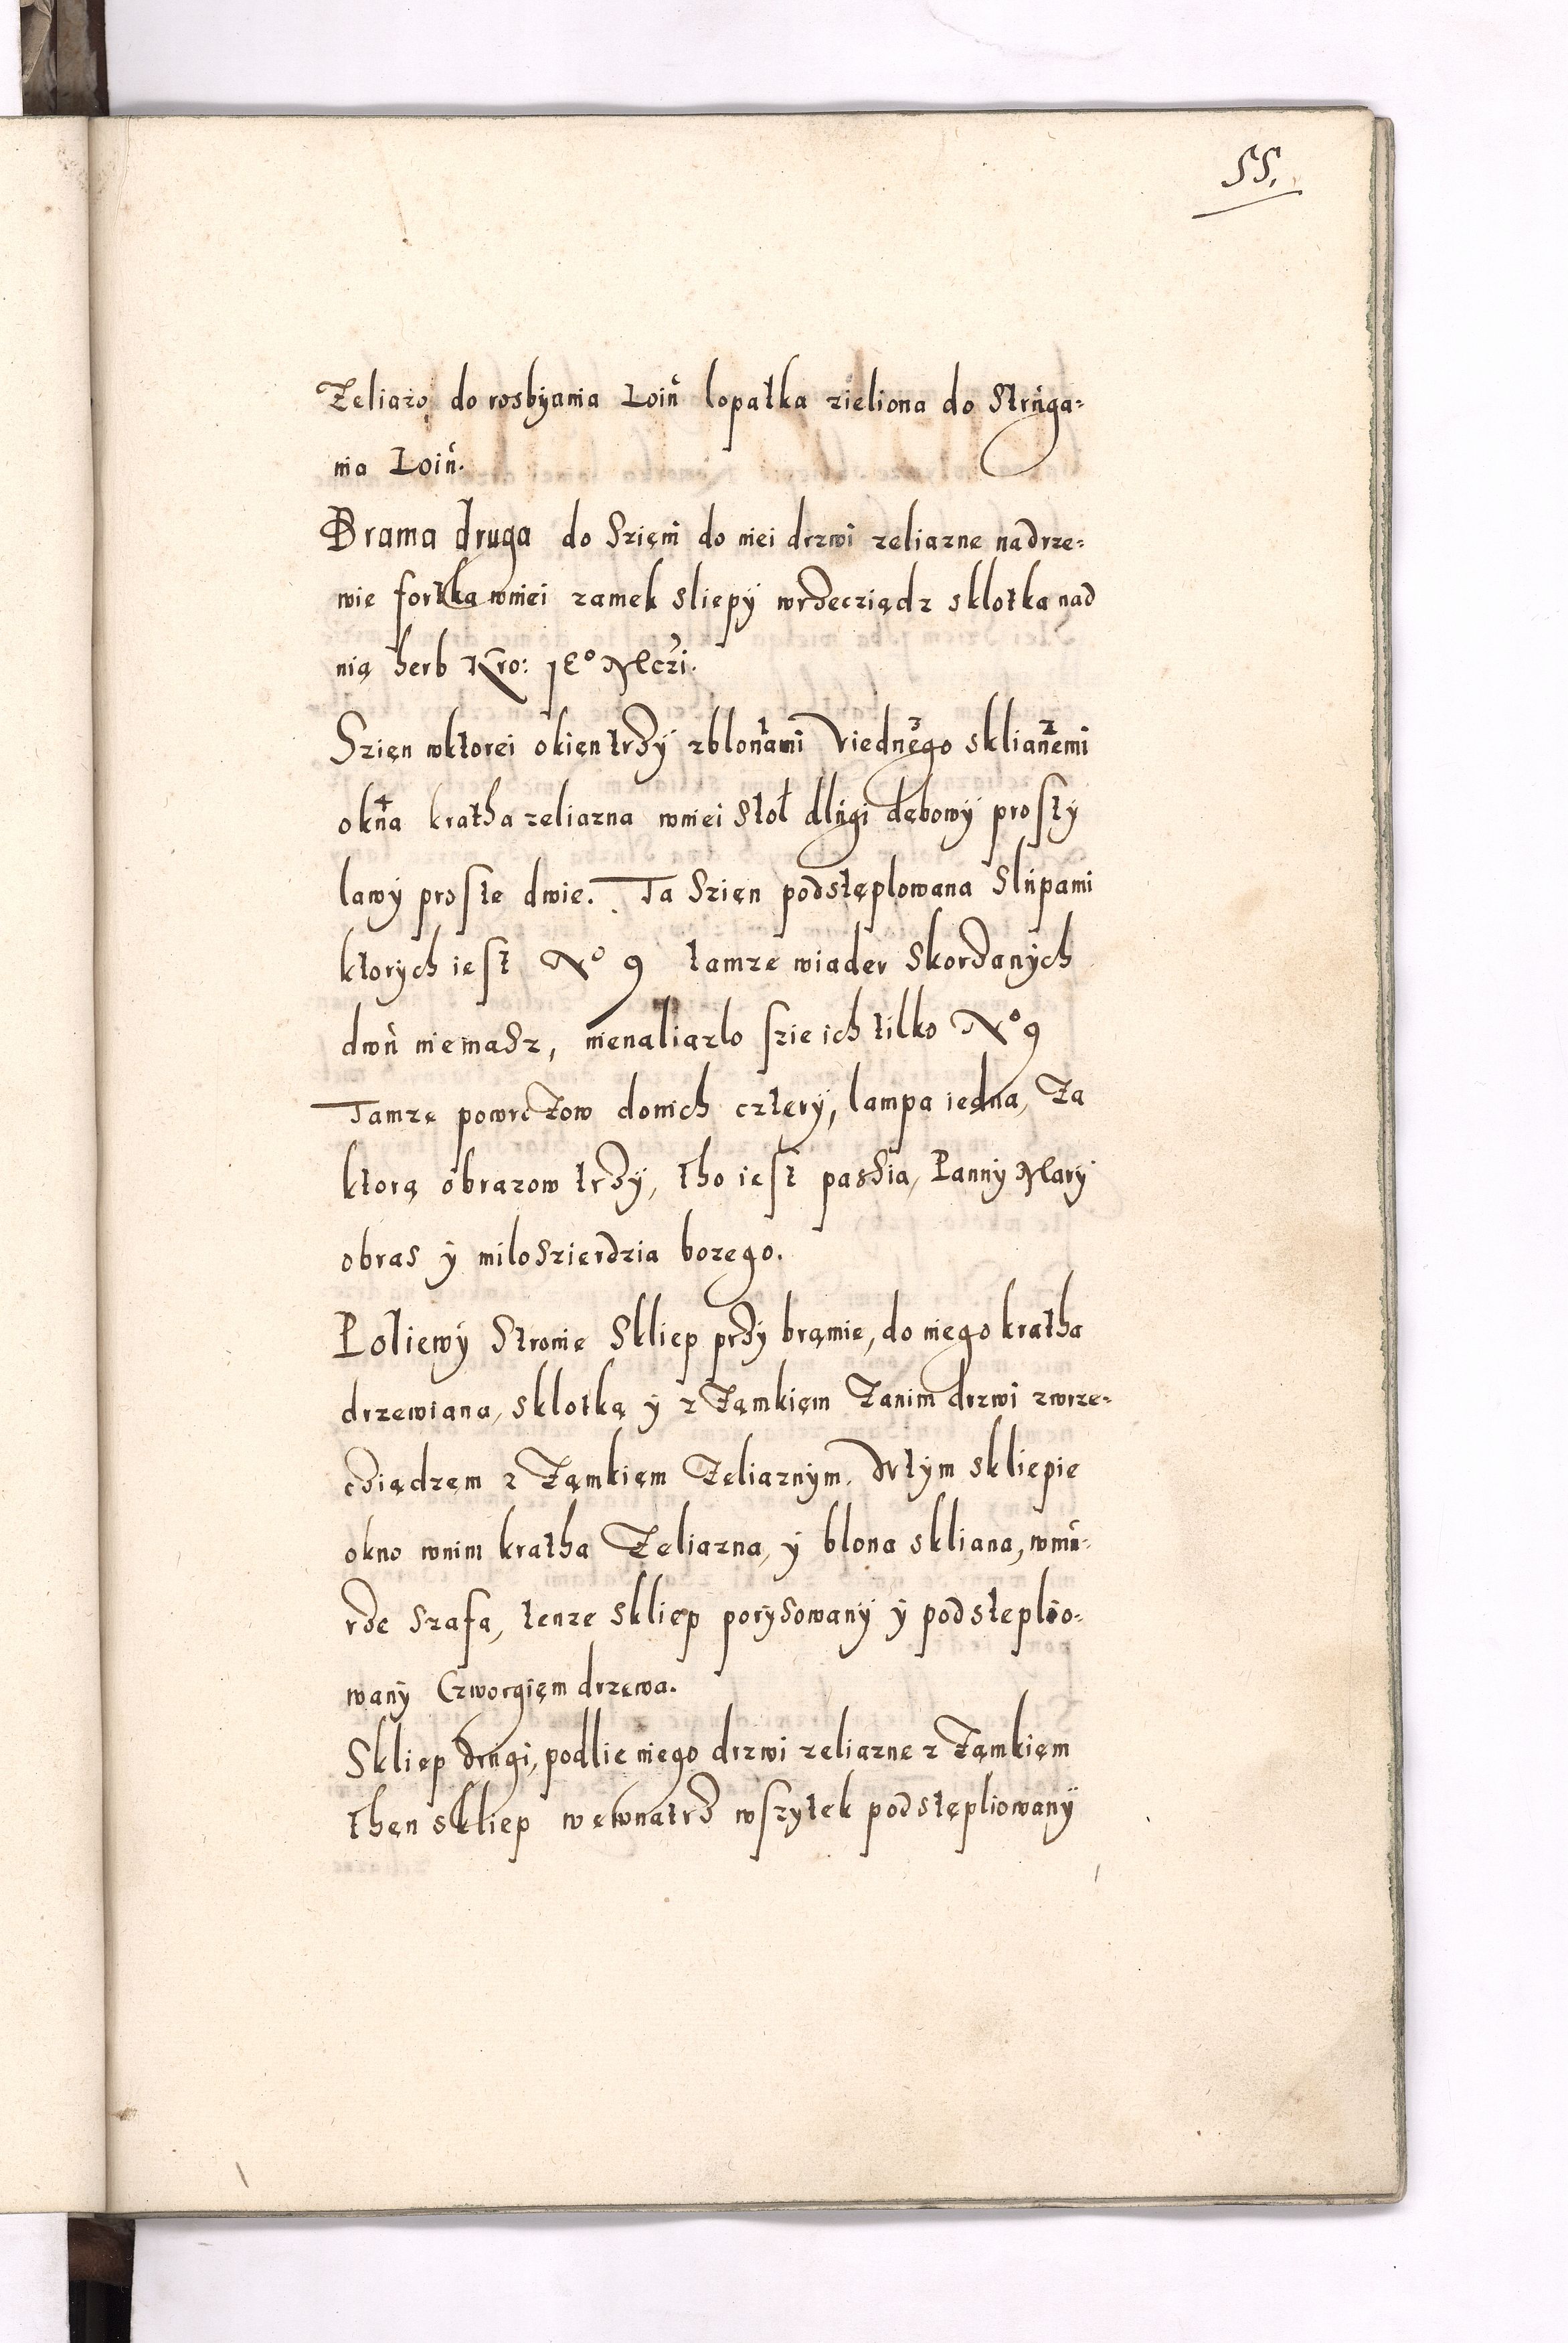 55.
Zeliazo do rosbÿania Loiu lopatka zieliona do Struga=
nia Loiu.
Brama druga do Szięni do niei drzwi zeliazne nadrze=
wie fortka wniei zamek sliepÿ wrzecziądz sklotka nad
nią herb Kro: JE⁰ Mczi.
Szięn wktorei okięn trzÿ zblonami Viednego sklianemi
okna kratha zeliazna wniei stol dlugi dębowÿ prostÿ
lawÿ proste dwie. Ta Szięn podstęplowana Slupami
ktorÿch iest N⁰ 9 tamze wiader Skorzanÿch
dwu niemasz, nienaliazlo szie ich tilko N⁰ 9
Tamze powrozow donich czterÿ, lampa iedna, Za
ktorą obrazow trzÿ, tho iest passia, Pannÿ Marÿ
obras ÿ miloszierdzia bozego.
Poliewÿ Stronie Skliep przÿ bramie, do niego kratha
drzewiana, sklotką ÿ z Zamkięm Zanim drzwi zwrze=
cziądzem z Zamkięm Zeliaznÿm. Wtÿm skliepie
okno wnim kratha Zeliazna, ÿ blona skliana, wmu=
rze szafa, tenze skliep porÿsowanÿ ÿ podsteplio=
wanÿ Czworgięm drzewa.
Skliep drugi, podlie niego drzwi zeliazne z Zamkięm
then skliep wewnatrz wszytek podstępliowanÿ